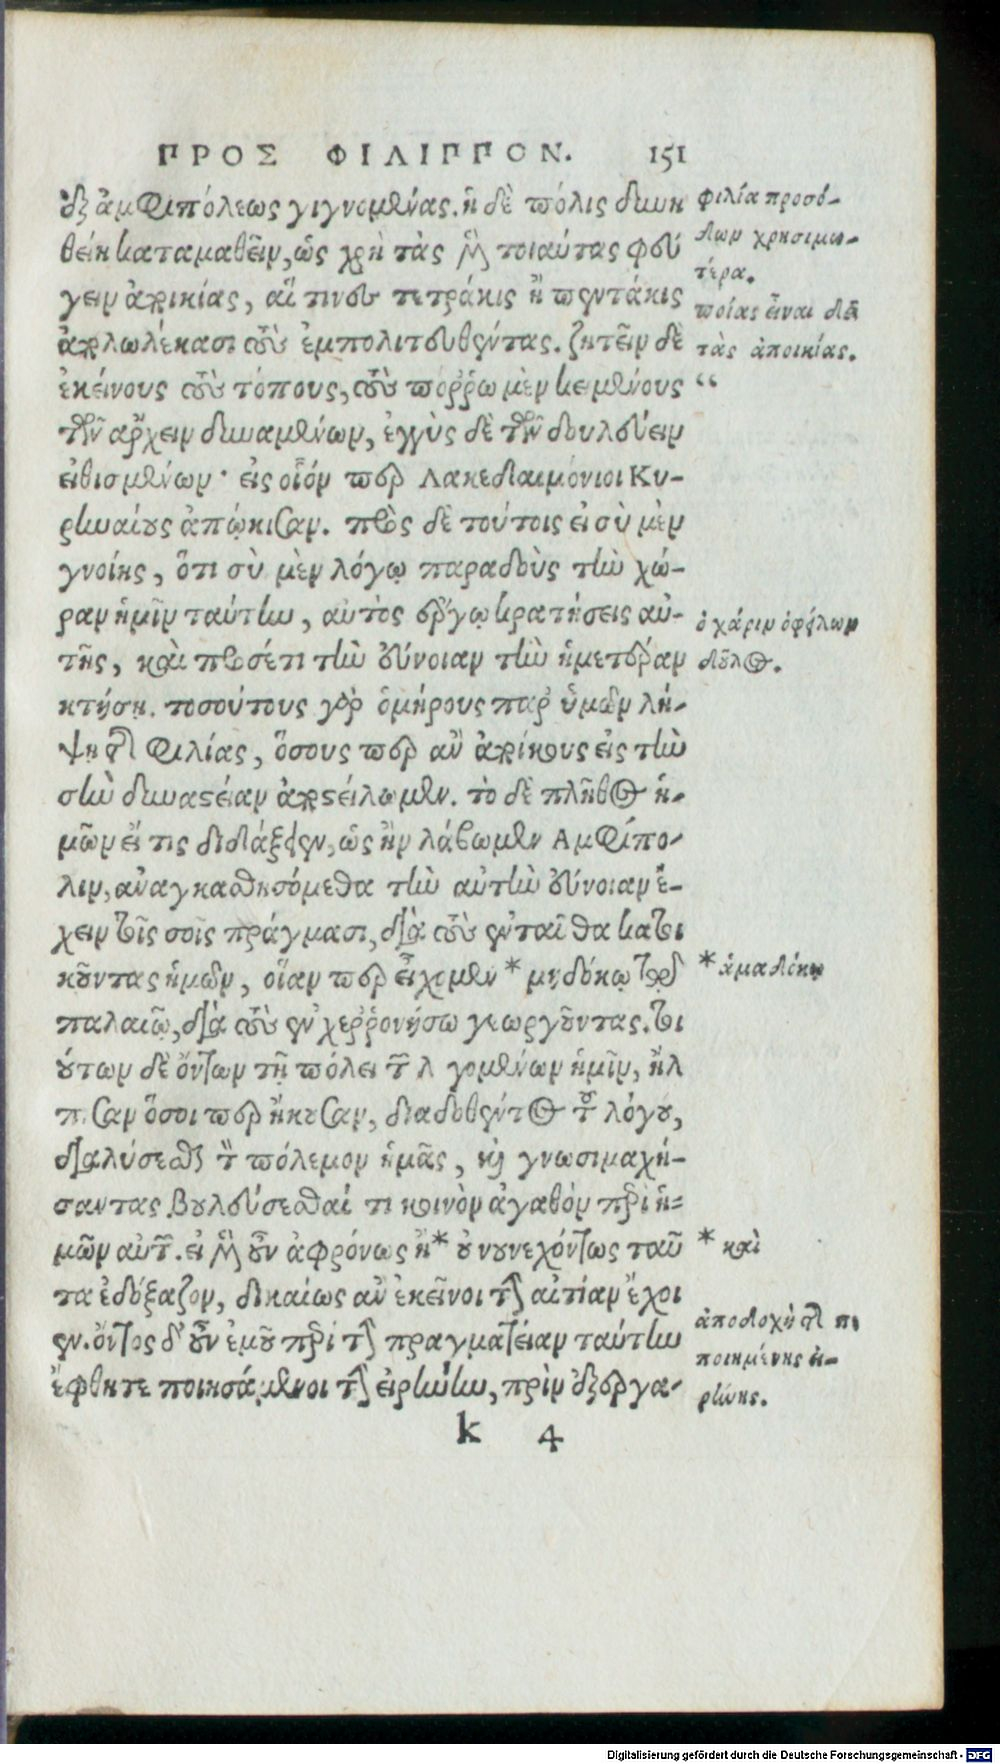 ΠΡΟΣ ΦΙΛΙΠΠΟΝ. 151
ἐξ ἀμφιπόλεως γιγνομένας. ἡ δὲ πόλις δυνη
θείη καταμαθεῖν, ὡς χρὴ τὰς μὲν τοιαύτας φεύ
γειν ἀποικίας, αἵ τινες τετράκις ἢ πεντάκις
ἀπολωλέκασι τοὺς ἐμπολιτευθέντας. ζητεῖν δὲ
ἐκείνους τοὺς τόπους, τοὺς πόῤῥω μὲν κειμένους
τῶν ἄρχειν δυναμένων, ἐγγὺς δὲ τῶν δουλεύειν
εἰθισμένων· εἰς οἷόν περ Λακεδαιμόνιοι Κυ-
ρηναίους ἀπῴκισαν. πρὸς δὲ τούτοις εἰ σὺ μὲν
γνοίης, ὅτι σὺ μὲν λόγῳ παραδοὺς τὴν χώ-
ραν ἡμῖν ταύτην, αὐτὸς ἔργῳ κρατήσεις αὐ-
τῆς, καὶ προσέτι τὴν εὔνοιαν τὴν ἡμετέραν
κτήσῃ. τοσούτους γὰρ ὁμήρους παρ' ὑμῶν λή-
ψῃ τῆς φιλίας, ὅσους περ ἂν ἀποίκους εἰς τὴν
σὴν δυναστείαν ἀποστείλωμεν. τὸ δὲ πλῆθος ἡ-
μῶν εἴ τις διδάξειεν, ὡς ἢν λάβωμεν Αμφίπο-
λιν, ἀναγκασθησόμεθα τὴν αὐτὴν εὔνοιαν ἔ-
χειν τοῖς σοῖς πράγμασι, διὰ τοὺς ἐνταῦθα κατοι
κοῦντας ἡμῶν, οἵαν περ εἴχομεν * μηδόκῳ τῷ
παλαιῷ, διὰ τοὺς ἐν χεῤῥονήσῳ γεωργοῦντας. τοι
ούτων δὲ ὄντων τῇ πόλει τῶν λεγομένων ἡμῖν, ἤλ
πισαν ὅσοι περ ἤκουσαν, διαδοθέντος τοῦ λόγου,
διαλύσεσθαι τὸν πόλεμον ἡμᾶς, καὶ γνωσιμαχή-
σαντας βουλεύσεσθαί τι κοινὸν ἀγαθὸν περὶ ἡ-
μῶν αὐτῶν. εἰ μὲν οὖν ἀφρόνως ἢ * οὐ νουνεχόντως ταῦ
τα ἐδόξαζον, δικαίως ἂν ἐκεῖνοι τὴν αἰτίαν ἔχοι
εν. ὄντος δ' οὖν ἐμοῦ περὶ τὴν πραγματείαν ταύτην
ἔφθητε ποιησάμενοι τὴν εἰρήνην, πρὶν ἐξεργα-
k 4
φιλία προσό-
δων χρησιμω-
τέρα.
ποίας εἶναι δεῖ
τὰς ἀποικίας.
“
ὁ χάριν ὀφείλων
δοῦλος.
* ἀμαδόκῳ
* καὶ
ἀποδοχὴ τῆς πε
ποιημένης εἰ-
ρήνης.
Digitalisierung gefördert durch die Deutsche Forschungsgemeinschaft - DFG